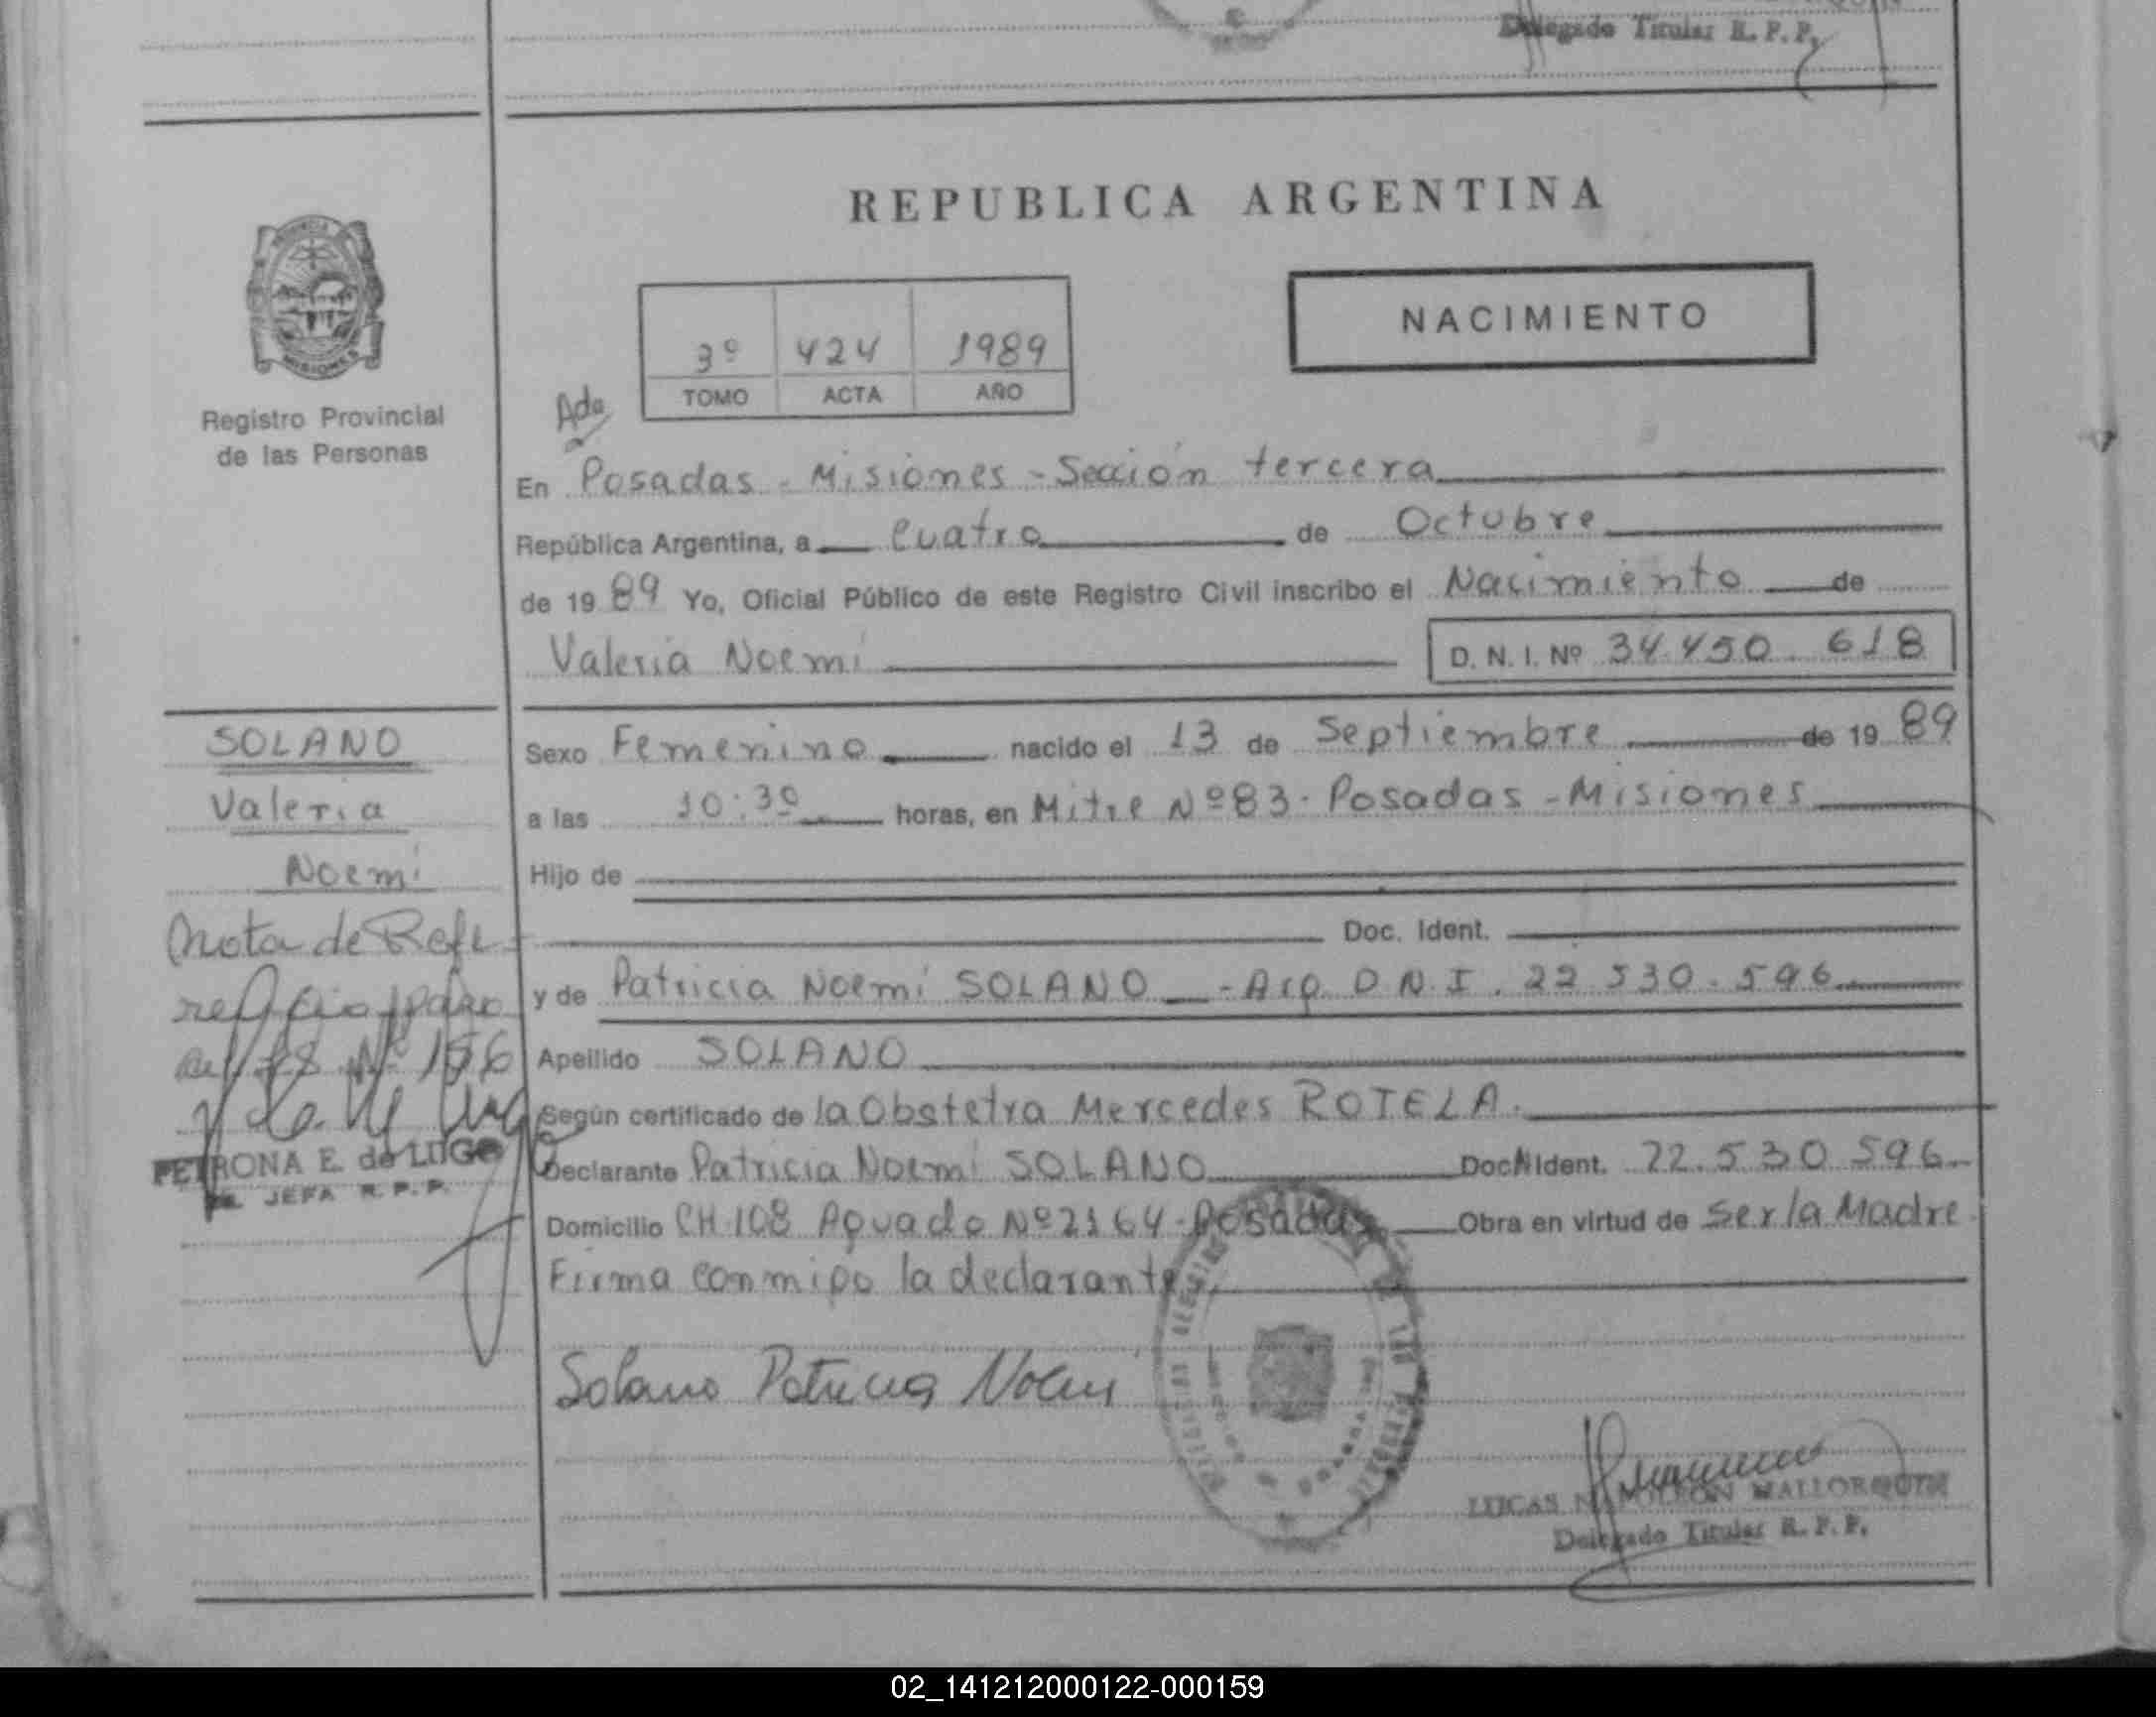 Delegado Titular R. P. P.
REPUBLICA ARGENTINA
NACIMIENTO
3º 424 1989
TOMO ACTA AÑO
PROVINCIA
MISIONES
Registro Provincial
de las Personas
En Posadas - Misiones - Sección tercera
República Argentina, a Cuatro de Octubre
de 19 89 Yo, Oficial Público de este Registro Civil inscribo el Nacimiento de
Valeria Noemí D. N. I. Nº 34.450.618
SOLANO
Valeria
Noemí
Sexo Femenino nacido el 13 de Septiembre de 19 89
a las 10:30 horas, en Mitre Nº 83 - Posadas - Misiones
Hijo de
Doc. Ident.
y de Patricia Noemí SOLANO - Arg. D.N.I. 22.530.596
Apellido SOLANO
Según certificado de la Obstetra Mercedes ROTELA.
Declarante Patricia Noemí SOLANO Doc. Ident. 22.530.596
Domicilio CH.108 Aguado Nº 2164 - Posadas Obra en virtud de Ser la Madre
Firma conmigo la declarante
Nota de Refe
156
PETRONA E. de LUGO
JEFA R. P. P.
Solano Patricia Noemí
LUCAS NAPOLEON MALLORQUIN
Delegado Titular R. P. P.
02_141212000122-000159